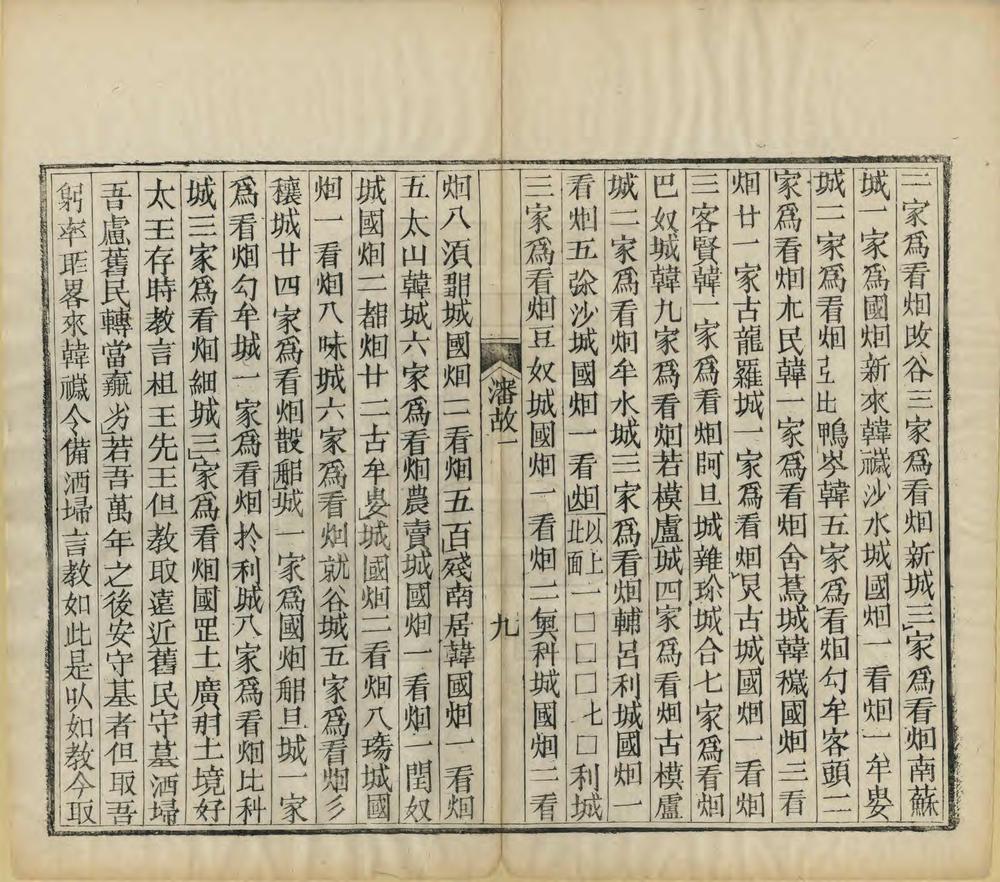 二家爲看烟改谷三家爲看烟新城三家爲看烟南蘇
城一家爲國烟新來韓穢沙水城國烟一看烟一牟婁
城二家爲看烟㢧比鴨岑韓五家爲看烟勾牟客頭二
家爲看烟朩民韓一家爲看烟舍蔦城韓穢國烟三看
烟廿一家古龍羅城一家爲看烟炅古城國烟一看烟
三客賢韓一家爲看烟阿旦城雜珎城合七家爲看烟
巴奴城韓九家爲看烟若模盧城四家爲看烟古模盧
城二家爲看烟牟水城三家爲看烟輔呂利城國烟一
看烟五弥沙城國烟一看烟以上此面一□□□七□利城
三家爲看烟豆奴城國烟一看烟二奥科城國烟二看
瀋故一
九
烟八湏城國烟二看烟五百殘南居韓國烟一看烟
五太山韓城六家爲看烟農賣城國烟一看烟一閏奴
城國烟二都烟廿二古牟婁城國烟二看烟八瑒城國
烟一看烟八味城六家爲看烟就谷城五家爲看烟彡
穰城廿四家爲看烟散城一家爲國烟旦城一家
爲看烟勾牟城一家爲看烟扵利城八家爲看烟比科
城三家爲看烟細城三家爲看烟國罡土廣開土境好
太王存時教言祖王先王但教取遠近舊民守墓洒埽
吾慮舊民轉當羸劣若吾萬年之後安守墓者但取吾
躬率所畧來韓穢令備洒埽言教如此是以如教令取